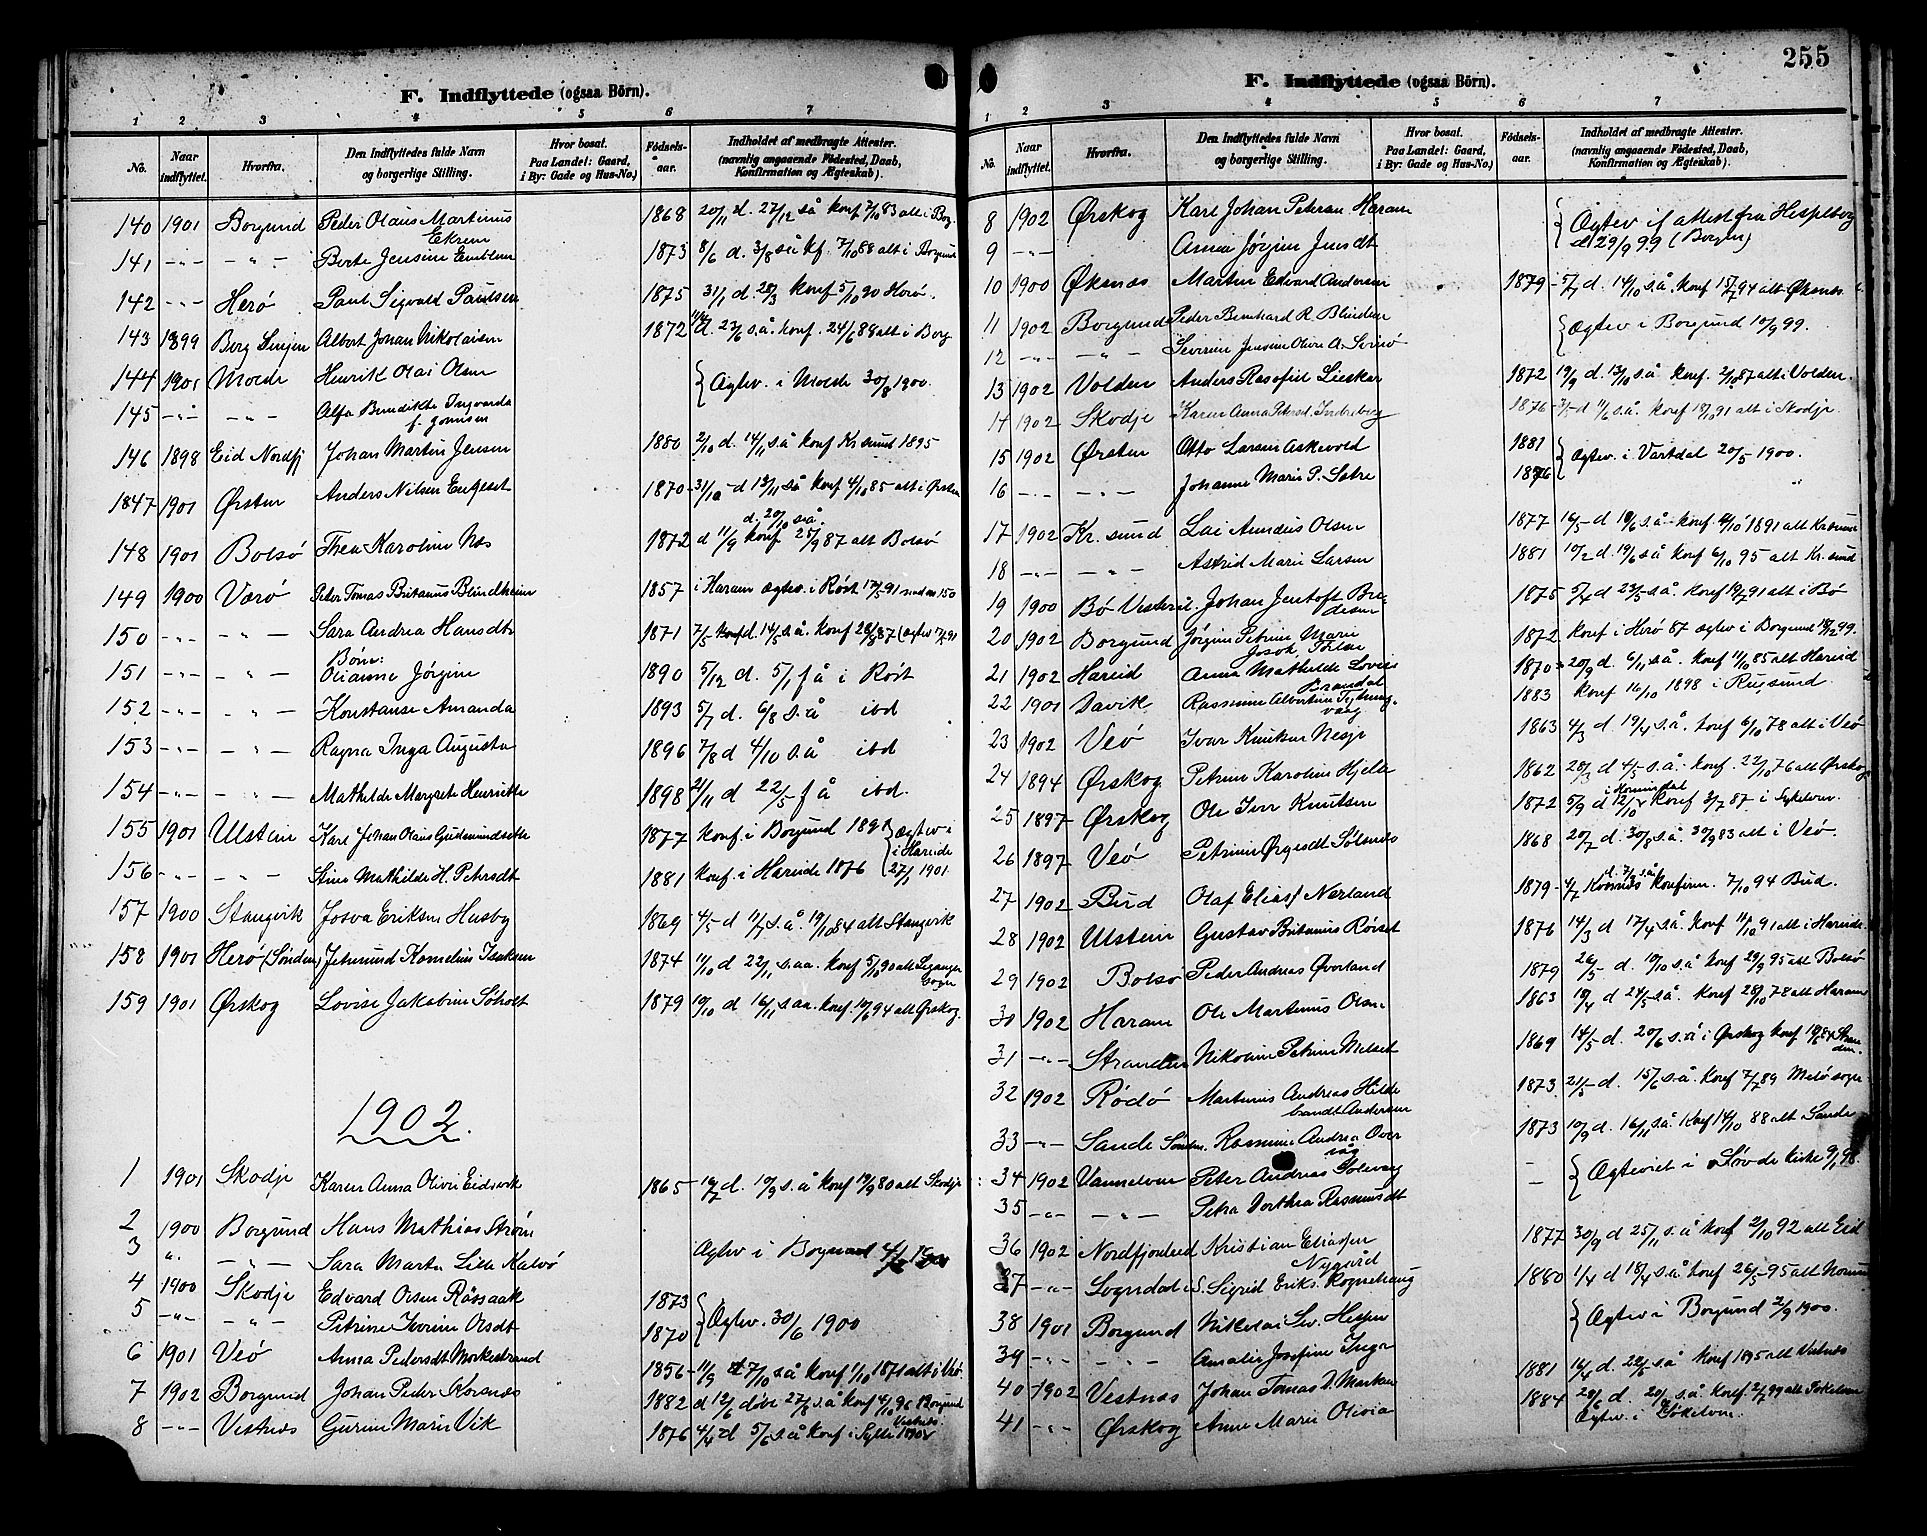 F. Indflyttede (ogsaa Börn).
1 2 3 4 5 6 7
No. Naar indflyttet. Hvorfra. Den Indflyttedes fulde Navn og borgerlige Stilling. Hvor bosat. Paa Landet: Gaard, i By: Gade og Hus-No.) Födsels-aar. Indholdet af medbragte Attester. (navnlig angaaende Födested, Daab, Konfirmation og Ægteskab).
140 1901 Borgund Peder Olaus Martinus Ekrem 1868 20/11 d. 27/12 så konf 7/10 83 alt i Borg
141 -"- -"- Berte Jensine Emblem 1873 8/6 d. 3/8 så kf. 7/10 88 alt i Borgund
142 -"- Herø Paul Sigvald Paulsen 1875 31/1 d. 28/3 konf 5/10 90 Herø.
143 1899 Borg Albert Johan Nikolaisen 1872 d. 23/6 s.å. konf. 24/6 88 alt i Borg
144 1901 Molde Henrik Olai Olsen { Ægtev. i Molde 30/8 1900.
145 -"- -"- Alfa Bendikte Ingvarda
146 1898 Eid Nordfj Johan Martin Jensen 1880 2/10 d. 14/11 s.å konf Kr.sund 1895
1847 1901 Ørsten Anders Nilsen 1870 - 31/10 - d 13/11 så konf 4/10 85 alt i Ørsten
148 1901 Bolsø Thea Karoline Næs 1872 d 11/9 d. 20/10 s.å. konf 25/9 87 alt Bolsø
149 1900 Værø Peter Tomas Britanus Blindheim 1857 i Haram Ægtev. i Røst 17/5 91 med no 150
150 -"- -"- Sara Andrea Hansdtr 1871 7/5 d. 14/5 s.å. konf 28/8 87 (Ægtev 17/5 91
Børn:
151 -"- -"- Oleanna Jørgine 1890 5/12 d. 5/1 f å i Røst
152 -"- -"- Konstanse Amanda 1893 5/7 d. 6/8 s.å ibd
153 -"- -"- Ragna Inga Augusta 1896 7/8 d 4/10 s.å ibd
154 -"- -"- Mathilde Margrete Henriette 1898 21/11 d 22/5 f å ibd.
155 1901 Ulstein Karl Johan Olaus Gudmundseth 1877 konf. i Borgund 1891 { Ægtev i i Hareide 27/1 1901.
156 -"- -"- Stine Mathilde H. Petersdt 1881 konf. i Hareide 1876
157 1900 Stangvik Josva Eriksen Husby 1869 4/5 d 11/7 s.å. 19/10 84 alt Stangvik
158 1901 Herø (Søndm) Jetmund Kornelius Isaksen 1874 11/10 d 22/11 s.aa. konf 5/10 90 alt Leganger Sogn
159 1901 Ørskog Lovise Jakobine Søholt 1879 19/10 d 16/11 s.aa. konf. 10/6 94 alt Ørskog.
1902.
1 1901 Skodje Karen Anna Olivie Eidsvik 1865 - 16/7 d. 10/9 s.å konf 19/9 80 alt Skodje
2 1900 Borgund Hans Mathias Strøm
3 " -"- Sara Marta Lida Kalvø Ægtev i Borgund
4 1900 Skodje Edvard Olsen Råssaak 1873 { Ægtev. 30/6 1900
5 -"- -"- Petrine Iverine Olsdt 1870
6 1901 Veø Anna Pedersdt Morkestrand 1856 - 11/9 d 7/10 s.å konf 1/10 1871 alt i Veø.
7 1902 Borgund Johan Peder Korsnæs 1882 d 12/6 døbt 27/8 s.å konf 4/10 96 Borgund
8 -"- Vestnæs Gurine Marie Vik 1876 4/4 d 5/6 s.å konf i Sylte

255
F. Indflyttede (ogsaa Börn).
1 2 3 4 5 6 7
No. Naar indflyttet. Hvorfra. Den Indflyttedes fulde Navn og borgerlige Stilling. Hvor bosat. Paa Landet: Gaard, i By: Gade og Hus-No.) Födsels-aar. Indholdet af medbragte Attester. (navnlig angaaende Födested, Daab, Konfirmation og Ægteskab).
8 1902 Ørskog Karl Johan Peterson Haram { Ægtev if attest fra Hespelborg d. 29/9 99 (Borgen)
9 -"- Anna Jørgine Jensdt
10 1900 Øksnæs Martin Edvard Andersen 1879 - 5/7 d. 14/10 s.å. konf 15/7 94 alt Øksnes
11 1902 Borgund Peder Bernhard R. Blindem { Ægtev i Borgund 10/9 99.
12 -"- -"- Severine Jensine Olive A.
13 1902 Volden Anders Rasofiel Lieskar 1872 19/9 d. 13/10 s.å. konf. 2/10 87 alt i Volden.
14 1902 Skodje Karen Anna Petersd. Indreberg 1876 - 3/5 d 11/6 s.å. konf 18/10 91 alt i Skodje
15 1902 Ørsten Otto Larsen Askevold 1881 { Ægtev. i Vartdal 20/5 1900.
16 -"- -"- Johanne Marie P. Sætre 1876
17 1902 Kr.sund Lai Amdeus Olsen 1877 16/5 - d 10/6 s.å - konf 4/10 1891 alt Kr.sund
18 -"- -"- Astrid Marie Larsen 1881 10/2 d. 19/6 s.å konf 6/10 95 alt Kr.sund
19 1900 Bø Vesteraal. Johan Jentoft Bredesen 1875 5/4 d 23/5 s.å. konf 19/7 91 alt i Bø
20 1902 Borgund Jørgine Petrine Marie 1872 konf i Herø 87 Ægtev i Borgund 18/12 99.
21 1902 Hareid Anna Mathilde Lovise Brandal 1870 20/9 d. 6/11 s.å. konf 11/10 85 alt Hareid
22 1901 Davik Rasmine Albertine 1883 konf 16/10 1898 i Rugsund.
23 1902 Veø Ivar Knutsen Nesje 1863 4/3 d. 19/4 s.å. konf 6/10 78 alt i Veø
24 1894 Ørskog Petrine Karoline Hjelle 1862 28/3 d 4/5 s.å. konf. 22/10 76 alt Ørskog
25 1897 Ørskog Ole Iver Knutsen 1872 5/9 d 12/10 konf 3/7 87 i Sykelven
26 1897 Veø Petrine Ørgesdt Sølsnes 1868 20/7 d. 30/8 s.å. 30/9 83 alt i Veø.
27 1902 Bud Olaf Eliass Nerland 1879 - 4/7 Kornnæs konfirm. 7/10 94 Bud.
28 1902 Ulstein Gustav Britanus Røiset 1876 14/3 d 17/4 s.å. konf 11/10 91 alt i Hareide.
29 1902 Bolsø Peder Andreas Øverland 1879 26/5 d. 19/10 s.å konf 29/9 95 alt Bolsø
30 1902 Haram Ole Martinus Olsen 1863 19/4 d 24/5 s.å. konf 28/10 78 alt Haram
31 -"- Stranden Nikoline Petrine Melset 1869 14/5 d. 20/6 s.å i Ørskog konf Stranden.
32 1902 Rødø Martinus Andreas Hildebrandt Andersen 1873 21/5 d. 15/6 s.å. konf 7/7 89 Melø sogn
33 -"- Sande Søndm. Rasmine Andrea Overvåg 1873 10/9 d. 16/11 s.å konf 14/10 88 alt Sande
34 1902 Vannelven Peter Andreas Solevåg - { Ægteviet i Søvde kirke 9/1 98.
35 -"- -"- Petra Dorthea Rasmusdt -
36 1902 Nordfjordeid Kristian Eliassen Nygård 1877 30/9 d 25/11 s.å konf 2/10 92 alt Eid
37 -"- Sogndal i S. Sigrid Eriks. Rognehaug 1880 1/4 d 18/4 s.å. konf 26/5 95 alt
38 1901 Borgund Nikolai Sev. Hessen { Ægtev i Borgund 2/9 1900.
39 -"- -"- Amalie Josefine Inga
40 1902 Vestnæs Johan Tomas D. Marken 1881 16/4 d. 22/6 s.å konf 1895 alt Vestnæs
41 -"- Ørskog Anne Marie Olivia 1884 28/6 d. 20/8 s.å konf. 2/7 99 alt Søkelven Ægtev. i Søkelven.